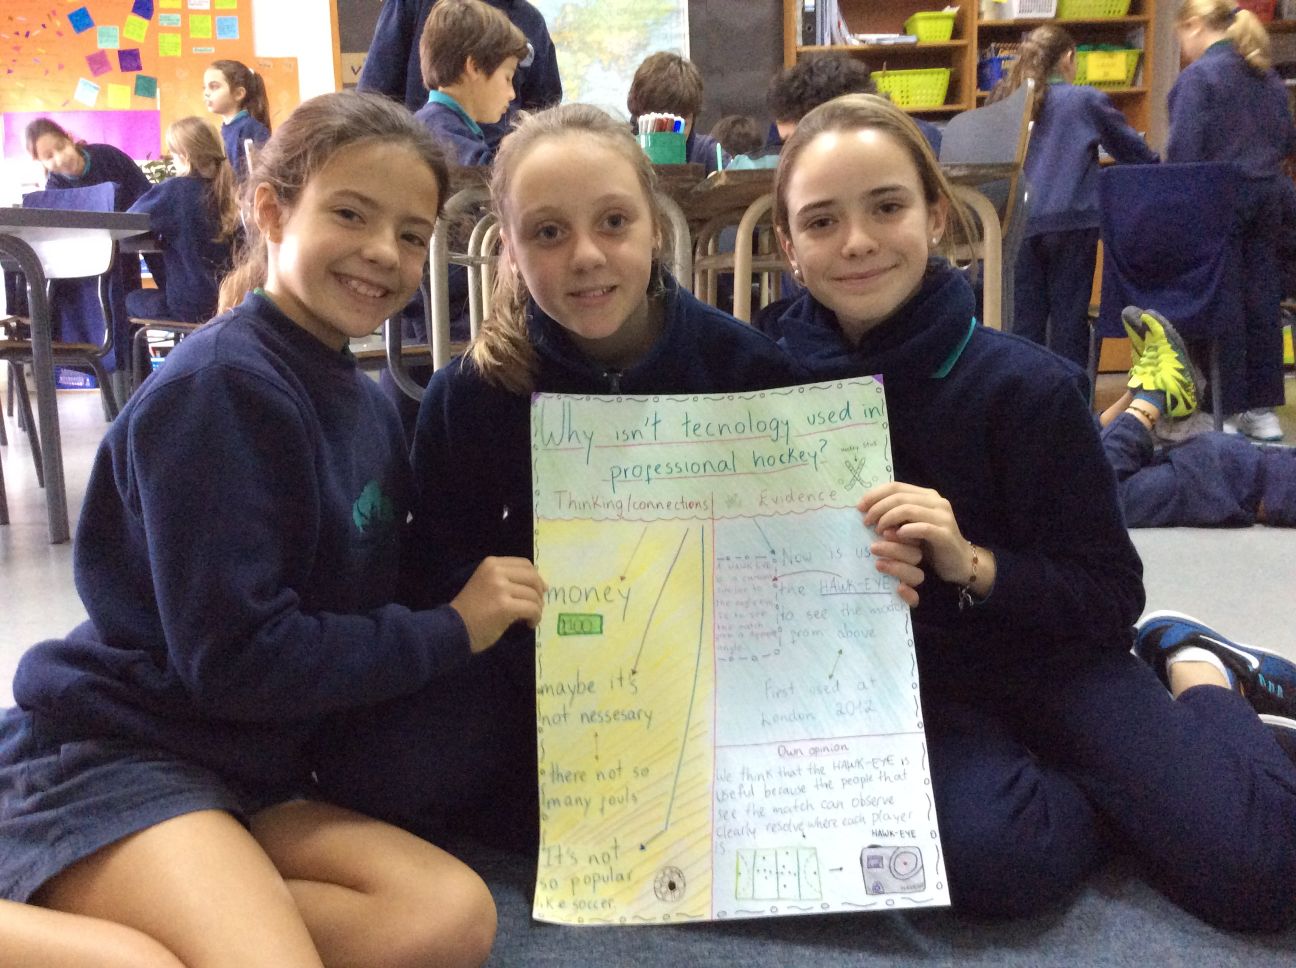 Why isn't tecnology used in
professional hockey?
Hockey stick
Thinking/connections
Evidence
money
100
maybe it's
not nessesary
there not so
many fouls
It's not
so popular
like soccer.
Now is
the HAWK-EYE
to see the match
from above
First used at
London 2012
A HAWK-EYE
is a camera
similar to
the
to see
the match
from a
angle
Own opinion
We think that the HAWK-EYE is
useful because the people that
see the match can observe
clearly resolve where each player
is
HAWK-EYE